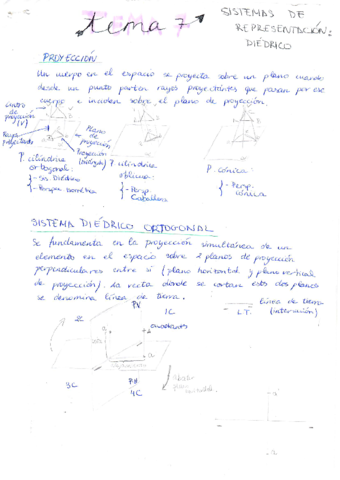 tema 7
SISTEMAS DE
REPRESENTACIÓN:
DIÉDRICO
PROYECCIÓN
Un cuerpo en el espacio se proyecta sobre un plano cuando
desde un punto parten rayos proyectantes que pasan por ese
cuerpo e inciden sobre el plano de proyección.
Centro
de
proyección
(V)
Rayos
proyectantes
Plano
de
proyección
Proyección
P. cilíndrica
ortogonal:
- Sis Diédrico
- Persp. isométrica
P. cilíndrica
oblicua:
- Persp.
Caballera
P. cónica:
- Persp.
cónica
SISTEMA DIÉDRICO ORTOGONAL
Se fundamenta en la proyección simultánea de un
elemento en el espacio sobre 2 planos de proyección
perpendiculares entre sí (plano horizontal y plano vertical
de proyección). La recta donde se cortan estos dos planos
se denomina línea de tierra.
línea de tierra
L.T. (intersección)
PV
IC
a
PH
4C
a